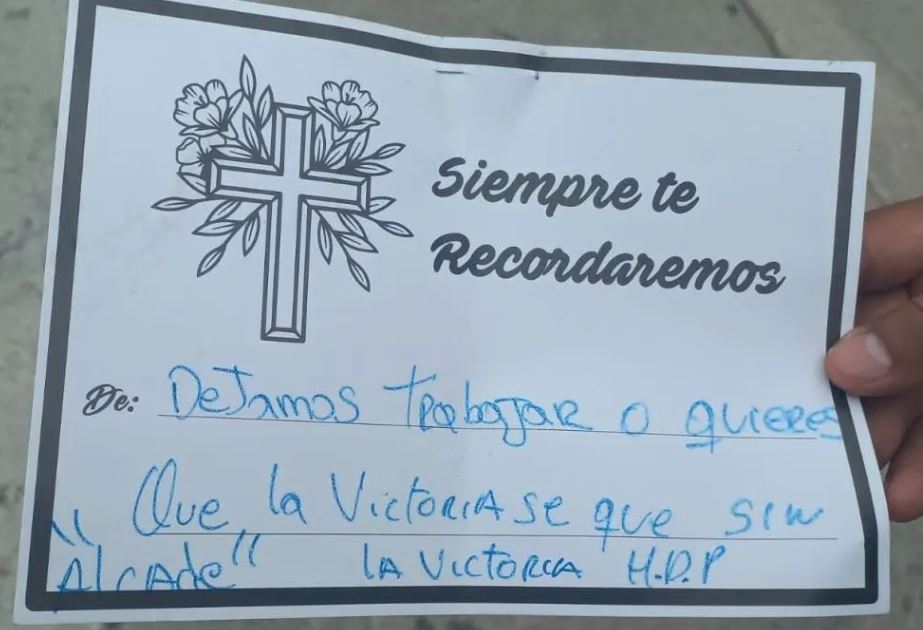 Siempre te
Recordaremos
De: DeJamos trabajar o quieres
Que la Victoria se que sin
"Alcade" la Victoria H.D.P